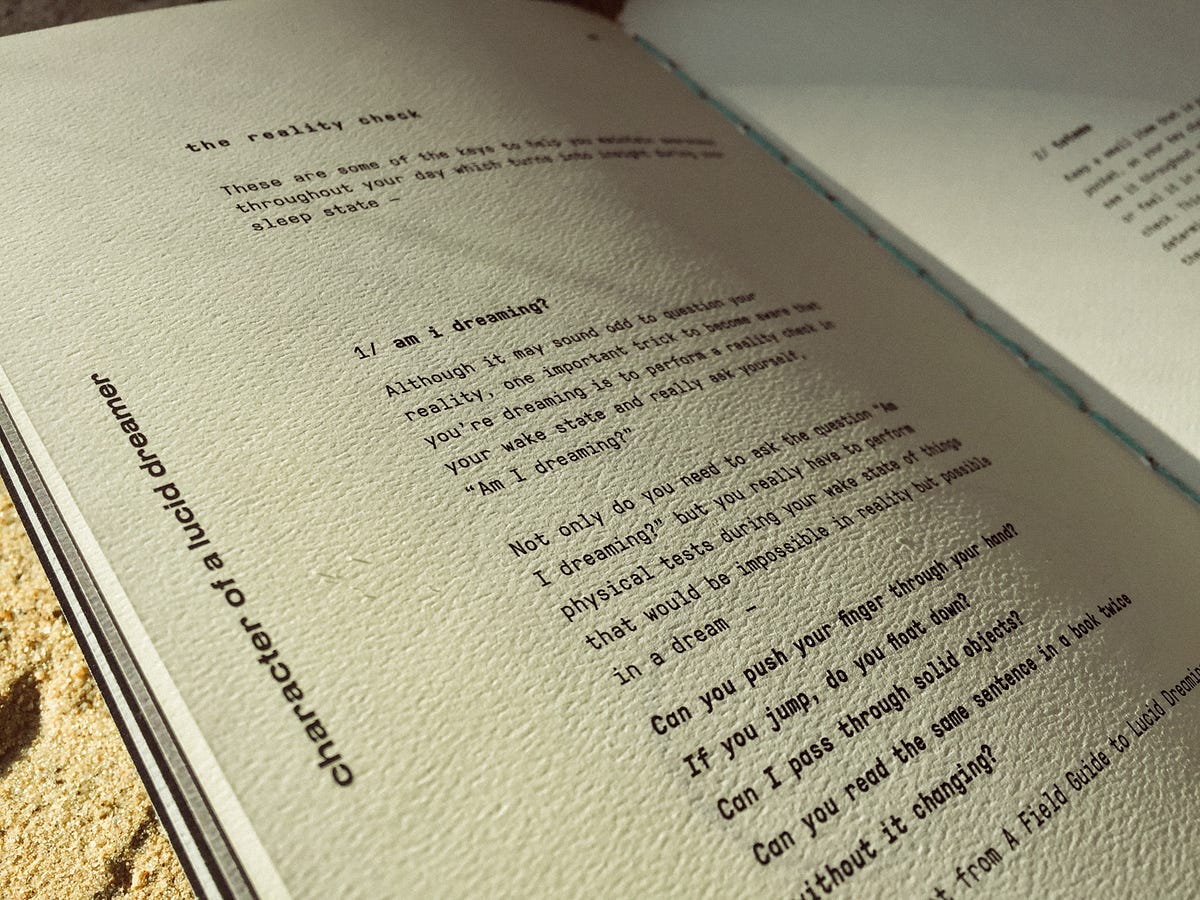 the reality check
These are some of the keys to help you maintain awareness
throughout your day which turns into insight during your
sleep state –
1/ am i dreaming?
Although it may sound odd to question your
reality, one important trick to become aware that
you're dreaming is to perform a reality check in
your wake state and really ask yourself,
“Am I dreaming?”
Not only do you need to ask the question “Am
I dreaming?” but you really have to perform
physical tests during your wake state of things
that would be impossible in reality but possible
in a dream –
Can you push your finger through your hand?
If you jump, do you float down?
Can I pass through solid objects?
Can you read the same sentence in a book twice
without it changing?
from A Field Guide to Lucid Dreaming
character of a lucid dreamer
2/ totems
keep a small item that
pocket, on your
see it throughout
or feel it in
check. This